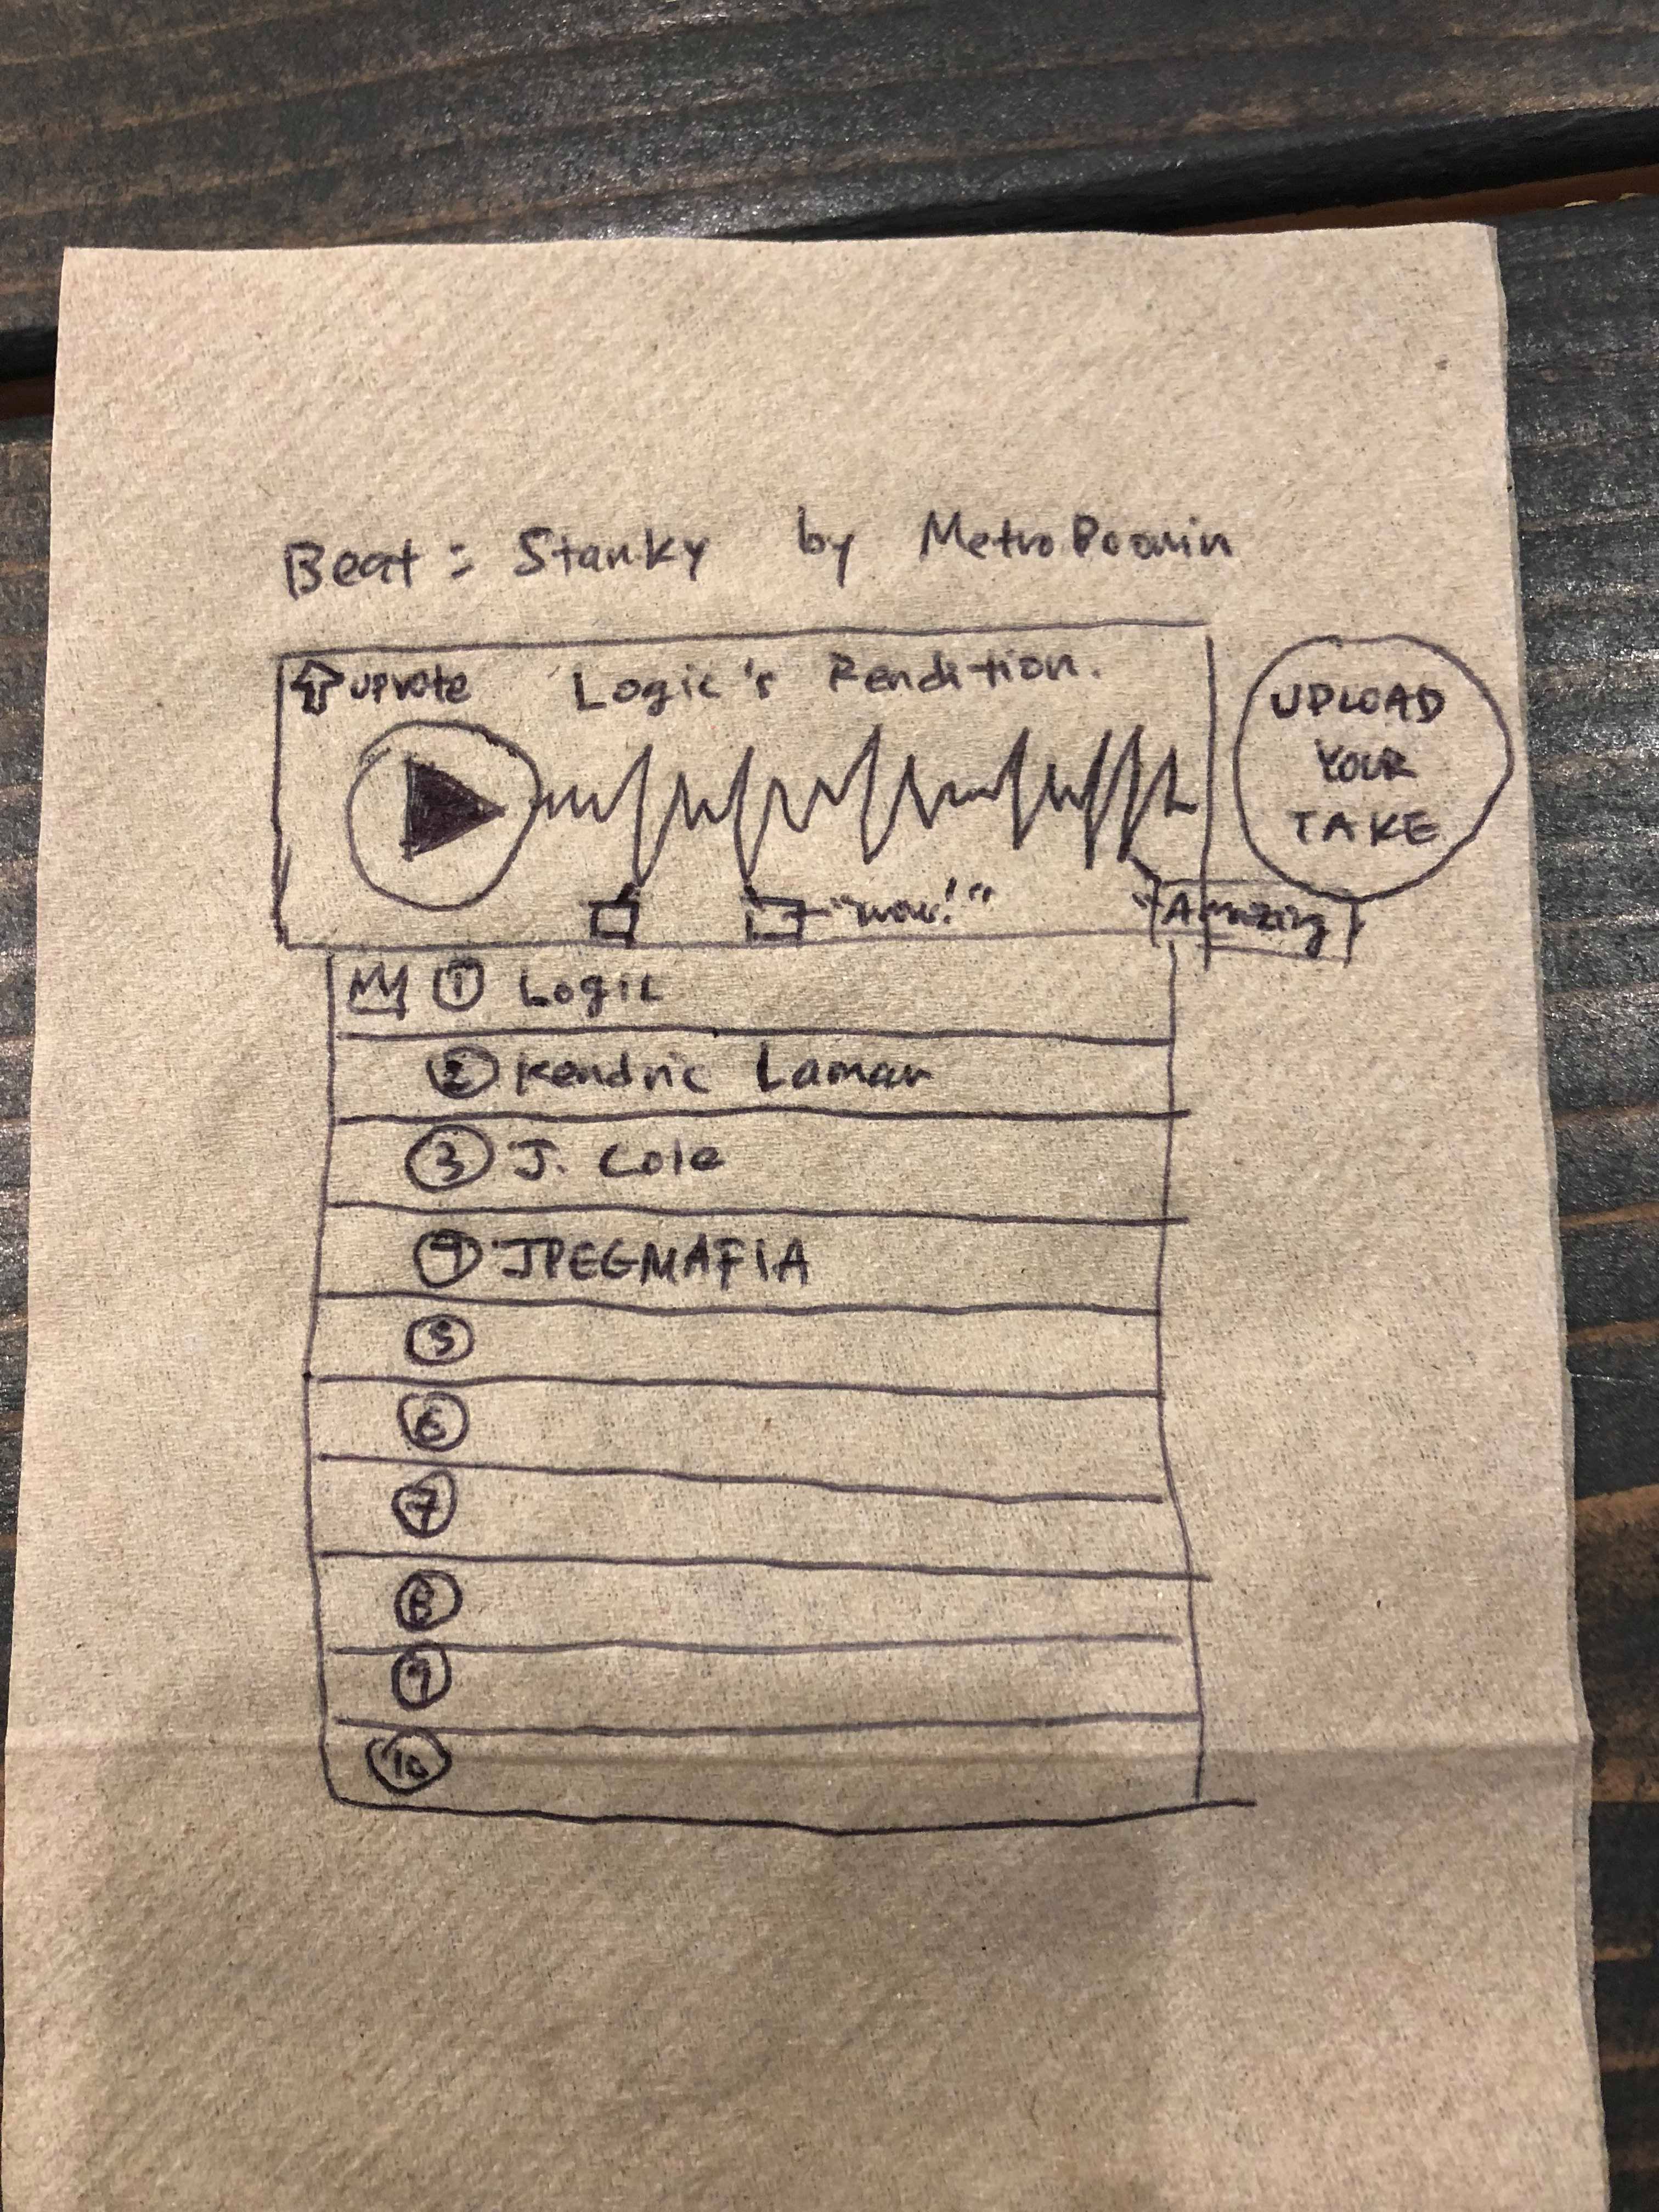 Beat: Stanky by MetroBoomin
upvote Logic's Rendition.
UPLOAD
YOUR
TAKE
"wow!"
"Amazing
1 Logic
2 Kendric Lamar
3 J. Cole
4 JPEGMAFIA
5
6
7
8
9
10